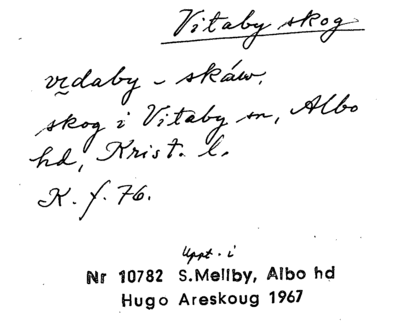 Vitaby skog
vr̰daby - skáw.
skog i Vitaby sn, Albo
hd, Krist. l.
K. f. 76.
Uppt. i
Nr 10782 S.Mellby, Albo hd
Hugo Areskoug 1967